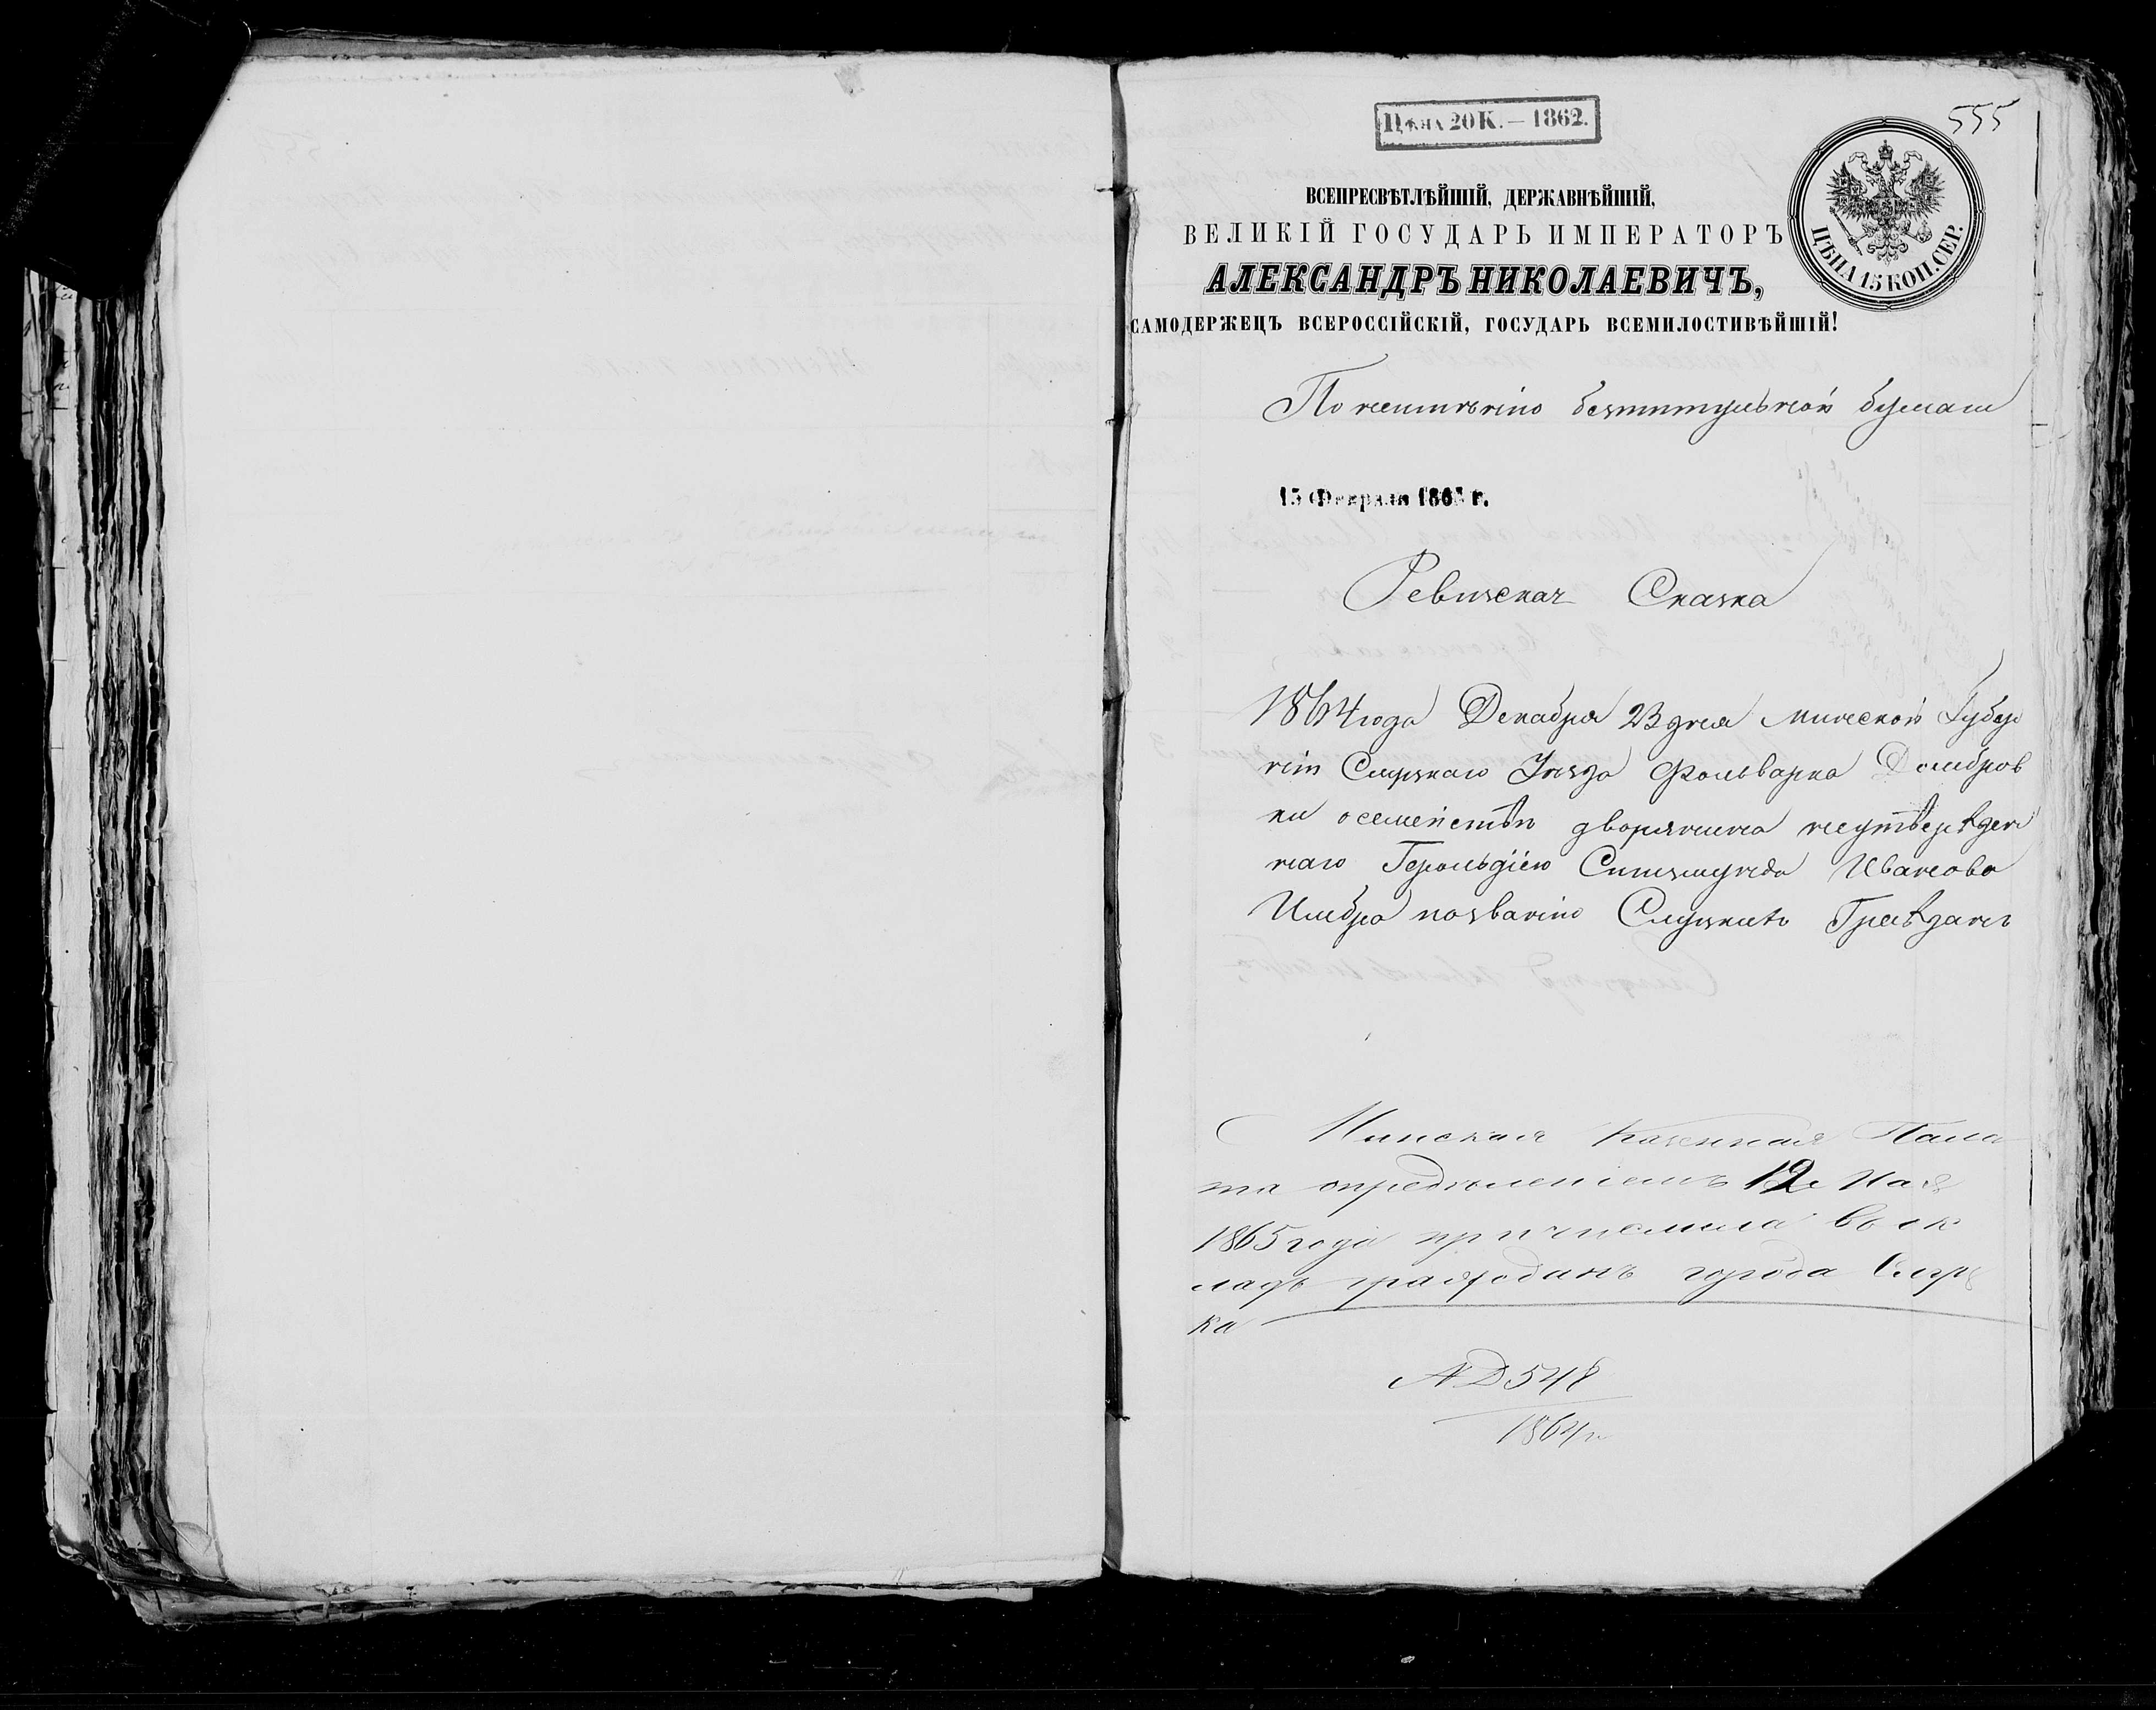 555
Цѣна 20 К. — 1862.
ЦѢНА 15 КОП. СЕР.
ВСЕПРЕСВѢТЛѢЙШІЙ, ДЕРЖАВНѢЙШІЙ,
ВЕЛИКІЙ ГОСУДАРЬ ИМПЕРАТОРЪ
АЛЕКСАНДРЪ НИКОЛАЕВИЧЪ,
САМОДЕРЖЕЦЪ ВСЕРОССІЙСКІЙ, ГОСУДАРЬ ВСЕМИЛОСТИВѢЙШІЙ!
По неимѣнію безтитульной бумаги
15 Февраля 1865 г.
Ревизская Сказка
1864 года Декабря 23 дня Минской Губер
ніи Слуцкаго Уѣзда Фольварка Домбров
ки о семействѣ дворянина неутвержден
наго Герольдіею Сигизмунда Иванова
Имбра по званію Слуцкихъ Гражданъ
Минская Казенная Пала
та опредѣленіемъ 12 Мая
1865 года причислила въ ок
ладъ гражданъ города Слуц
ка
№ 548
1864 г.